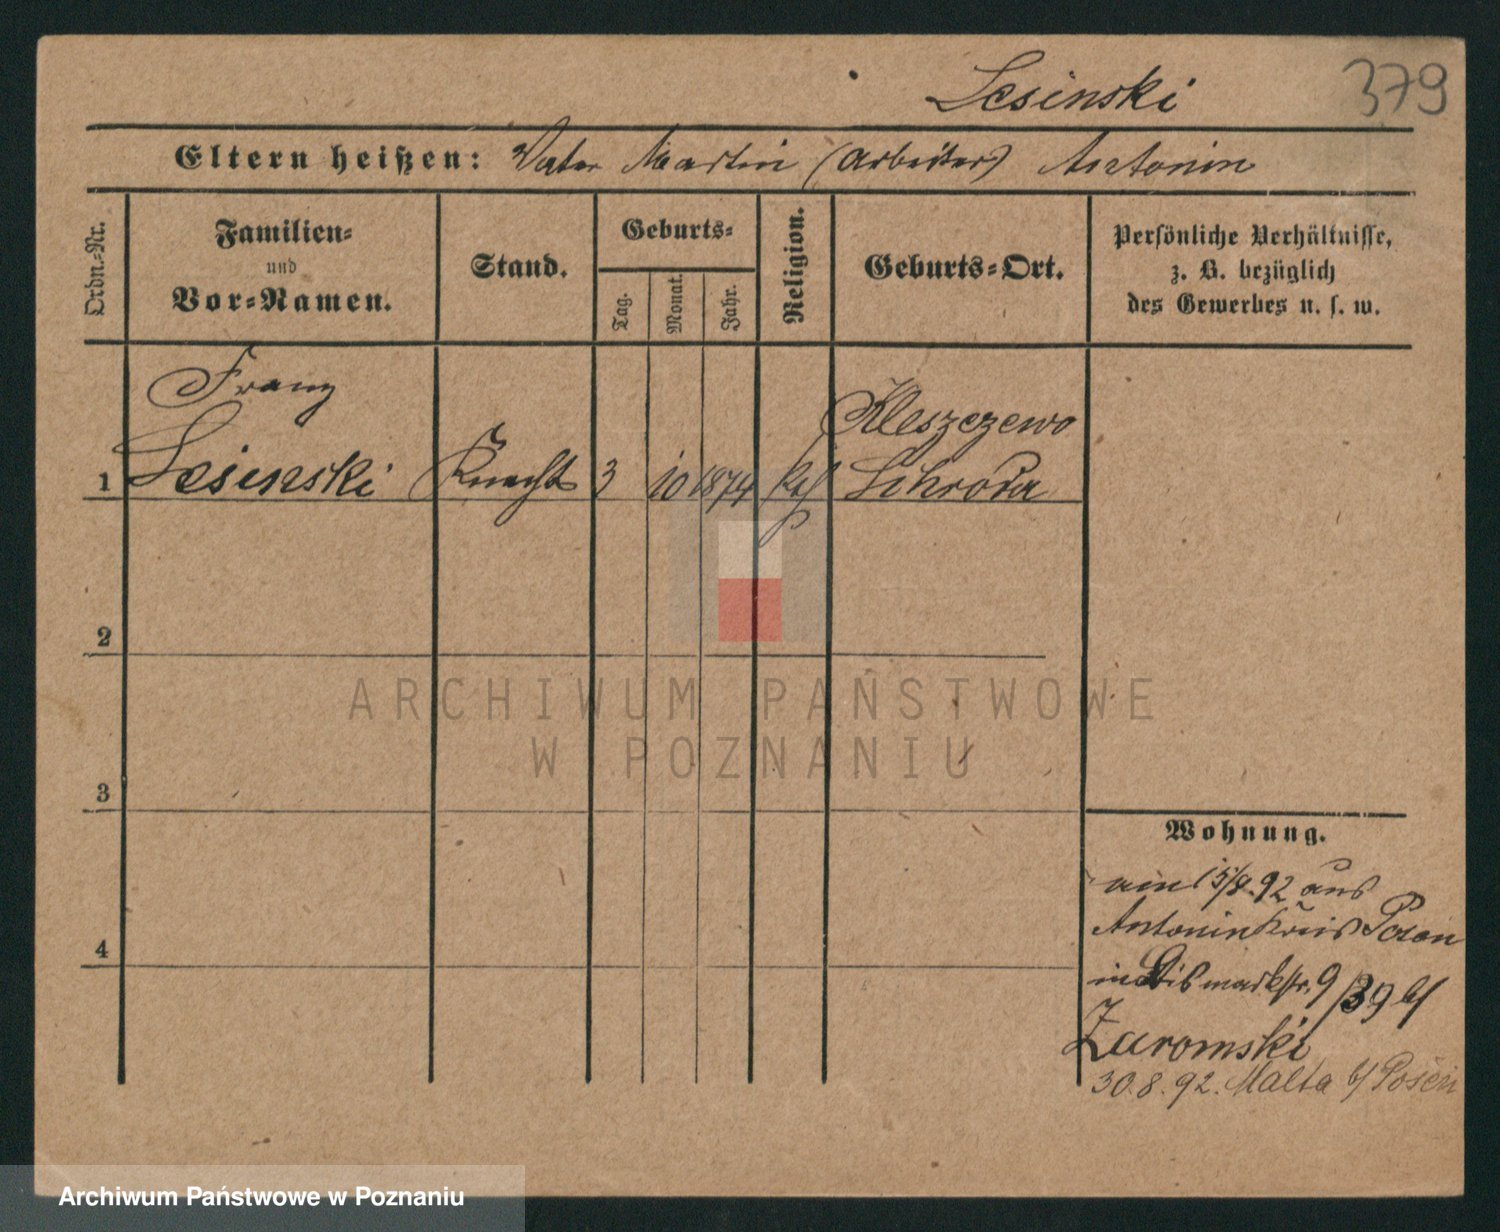 Lesinski
379
Eltern heißen: Vater Martin (Arbeiter) Antonin
Ordn.=Nr.
Familien=
und
Vor=Namen.
Stand.
Geburts=
Tag.
Monat.
Jahr.
Religion.
Geburts=Ort.
Persönliche Verhältnisse,
z. B. bezüglich
des Gewerbes u. s. w.
Franz
1 Lesinski Knecht 3 10 1874 kth Kleszczewo
Schroda
2
3
4
Wohnung.
am 15/8.92 aus
Antonin Kreis Posen
in Bismarkstr. 9/39 b/
Zaromski
30.8.92. Malta b/ Posen
ARCHIWUM PAŃSTWOWE
W POZNANIU
Archiwum Państwowe w Poznaniu